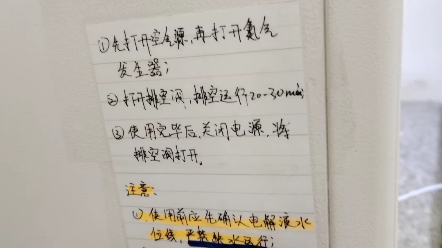 ①先打开空气源,再打开氮气
发生器;
②打开排空阀,排空运行20-30min
③使用完毕后,关闭电源,将
排空阀打开。
注意:
①使用前应先确认电解液水
位线,严禁缺水运行;